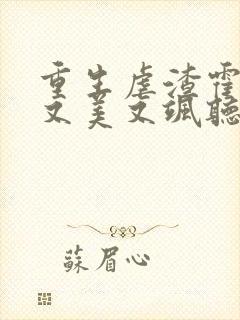 重生虐渣霍
又美又颯聽
蘇眉心